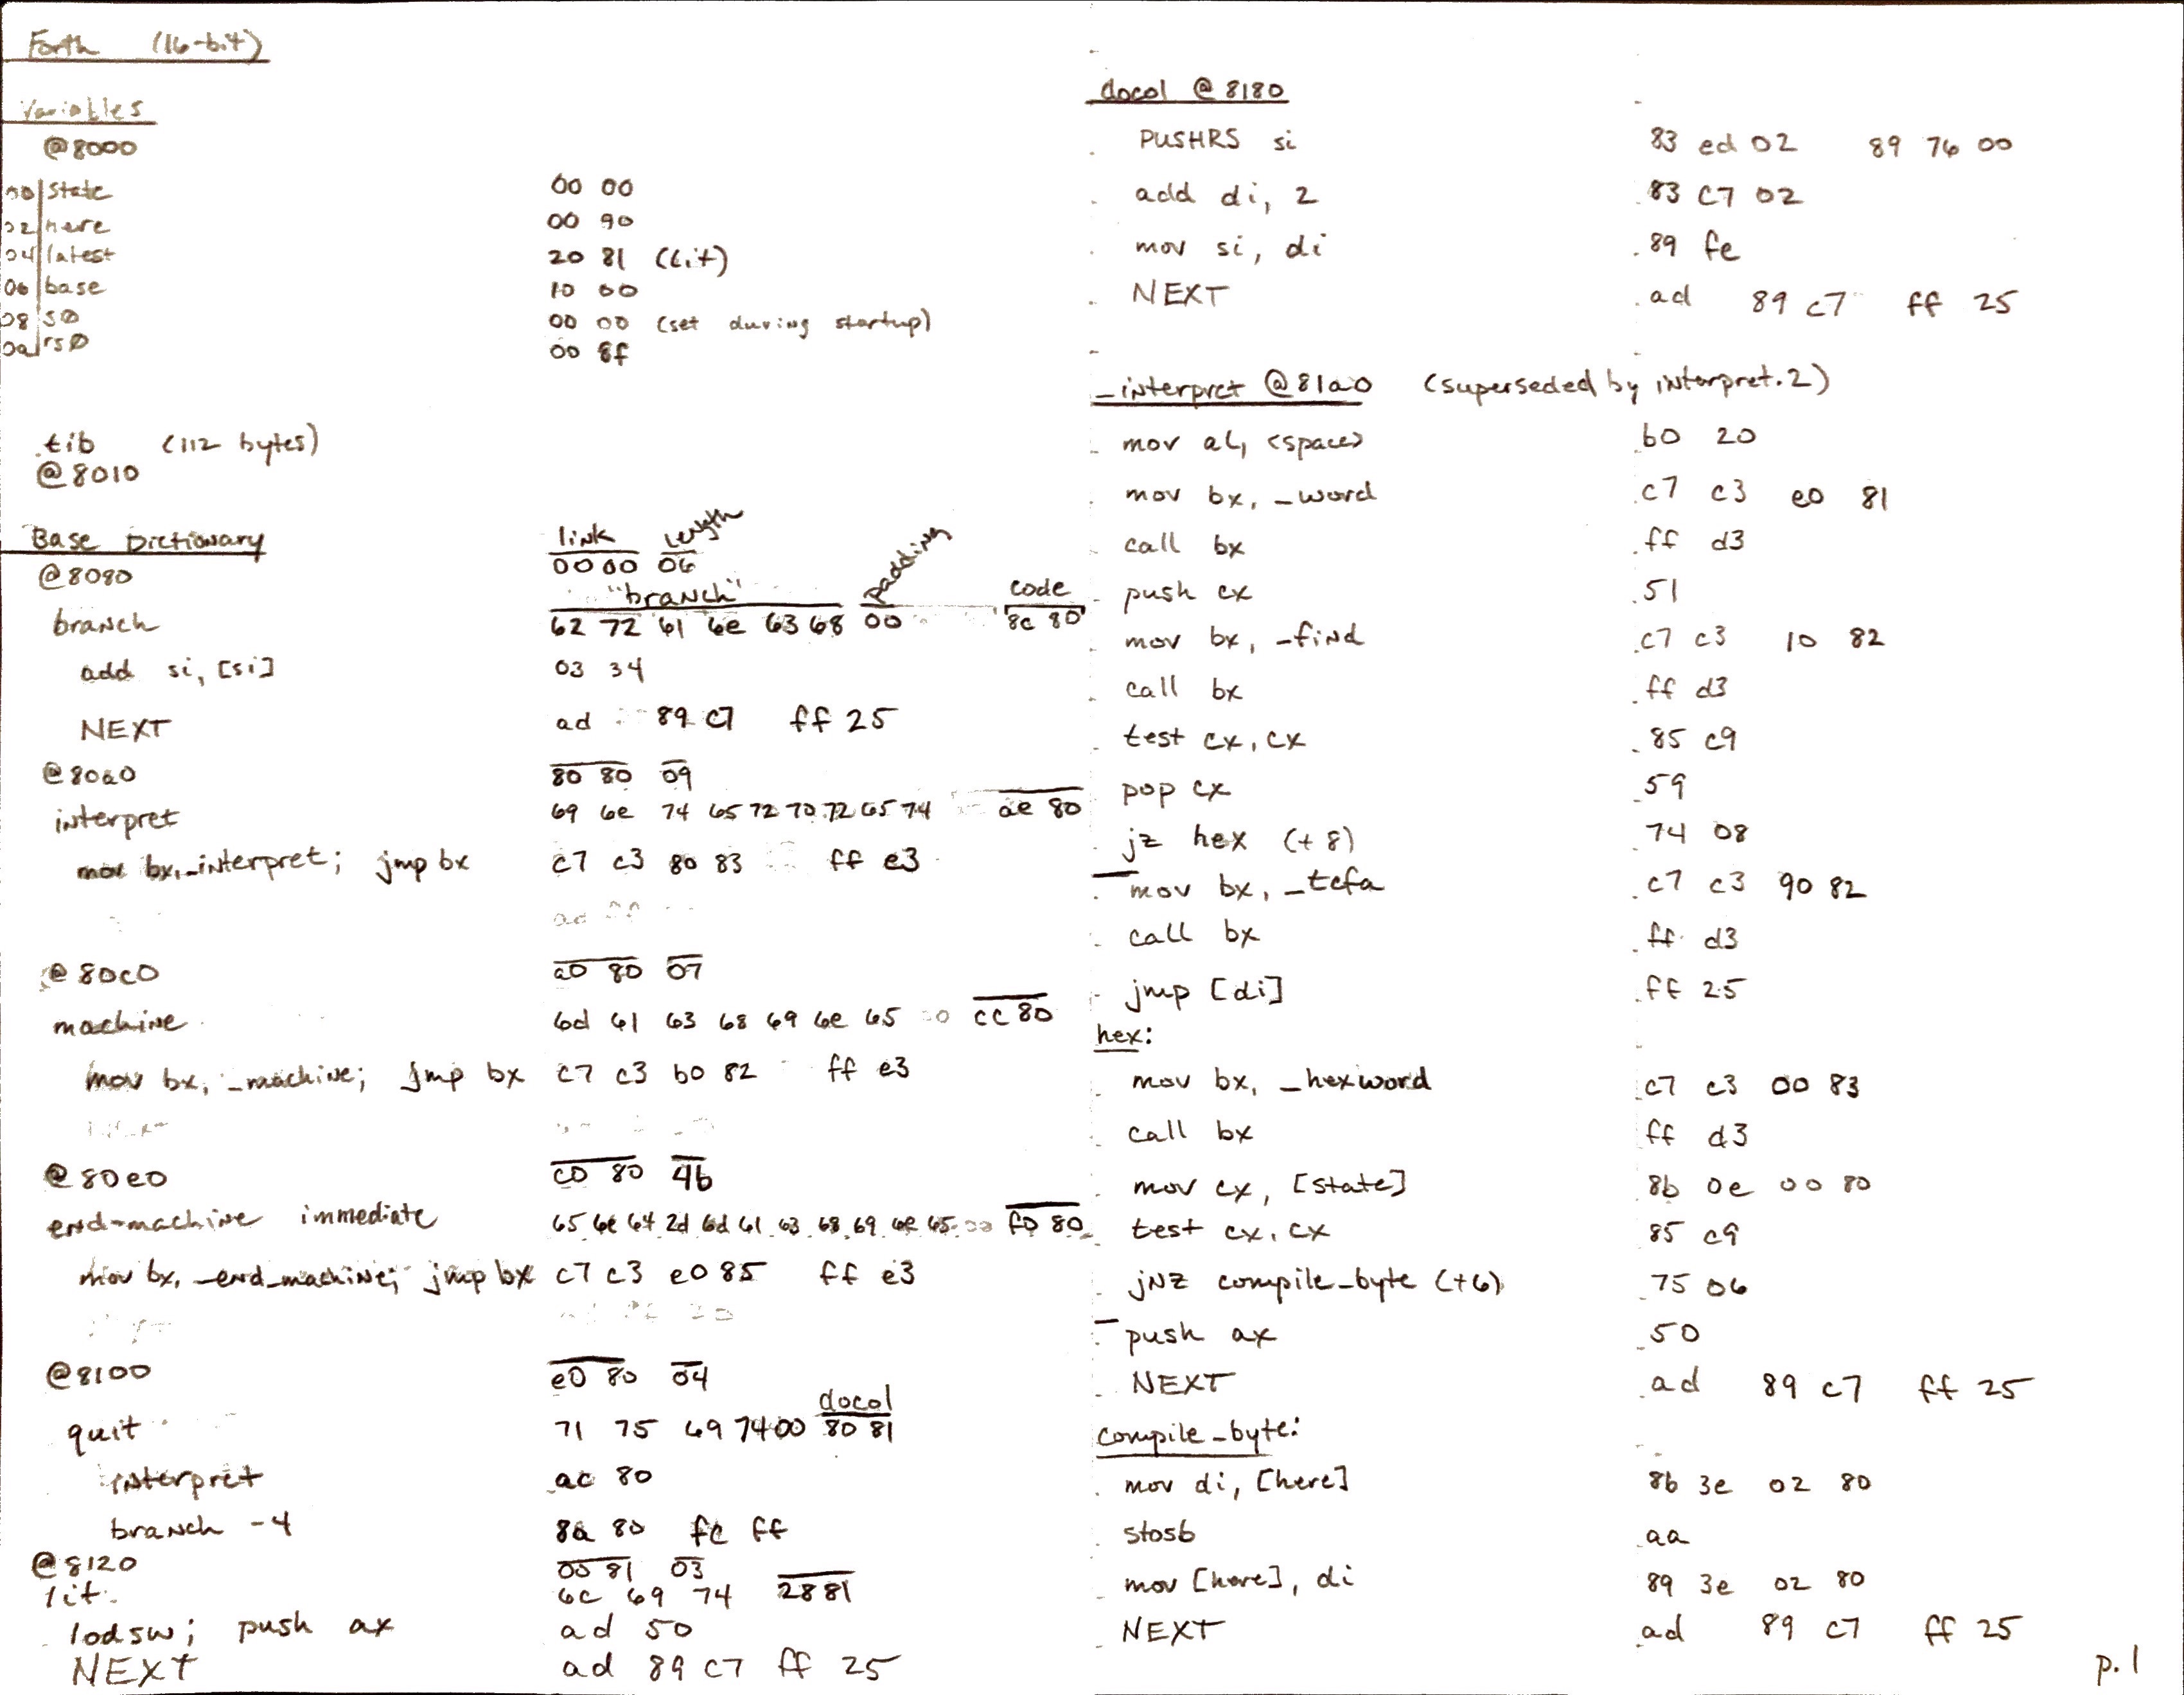 Forth (16-bit)
Variables
@8000
00 state 00 00
02 here 00 90
04 latest 20 81 (lit)
06 base 10 00
08 s0 00 00 (set during startup)
0a rs0 00 8f
tib (112 bytes)
@8010
Base Dictionary link length padding
@8080 00 00 06
"branch" code
branch 62 72 61 6e 63 68 00 8c 80
add si, [si] 03 34
NEXT ad 89 c7 ff 25
@80a0 80 80 09
interpret 69 6e 74 65 72 70 72 65 74 ae 80
mov bx, _interpret; jmp bx c7 c3 80 83 ff e3
@80c0 a0 80 07
machine 6d 61 63 68 69 6e 65 00 cc 80
mov bx, _machine; jmp bx c7 c3 b0 82 ff e3
@80e0 c0 80 4b
end-machine immediate 65 6e 64 2d 6d 61 63 68 69 6e 65 00 f0 80
mov bx, _end_machine; jmp bx c7 c3 e0 85 ff e3
@8100 e0 80 04
docol
quit 71 75 69 74 00 80 81
interpret ac 80
branch -4 8a 80 fc ff
@8120 00 81 03
lit 6c 69 74 28 81
lodsw; push ax ad 50
NEXT ad 89 c7 ff 25
docol @ 8180
PUSHRS si 83 ed 02 89 76 00
add di, 2 83 c7 02
mov si, di 89 fe
NEXT ad 89 c7 ff 25
_interpret @ 81a0 (superseded by interpret.2)
mov al, <space> b0 20
mov bx, _word c7 c3 e0 81
call bx ff d3
push cx 51
mov bx, _find c7 c3 10 82
call bx ff d3
test cx, cx 85 c9
pop cx 59
jz hex (+8) 74 08
mov bx, _tcfa c7 c3 90 82
call bx ff d3
jmp [di] ff 25
hex:
mov bx, _hexword c7 c3 00 83
call bx ff d3
mov cx, [state] 8b 0e 00 80
test cx, cx 85 c9
jnz compile_byte (+6) 75 06
push ax 50
NEXT ad 89 c7 ff 25
compile_byte:
mov di, [here] 8b 3e 02 80
stosb aa
mov [here], di 89 3e 02 80
NEXT ad 89 c7 ff 25
p. 1